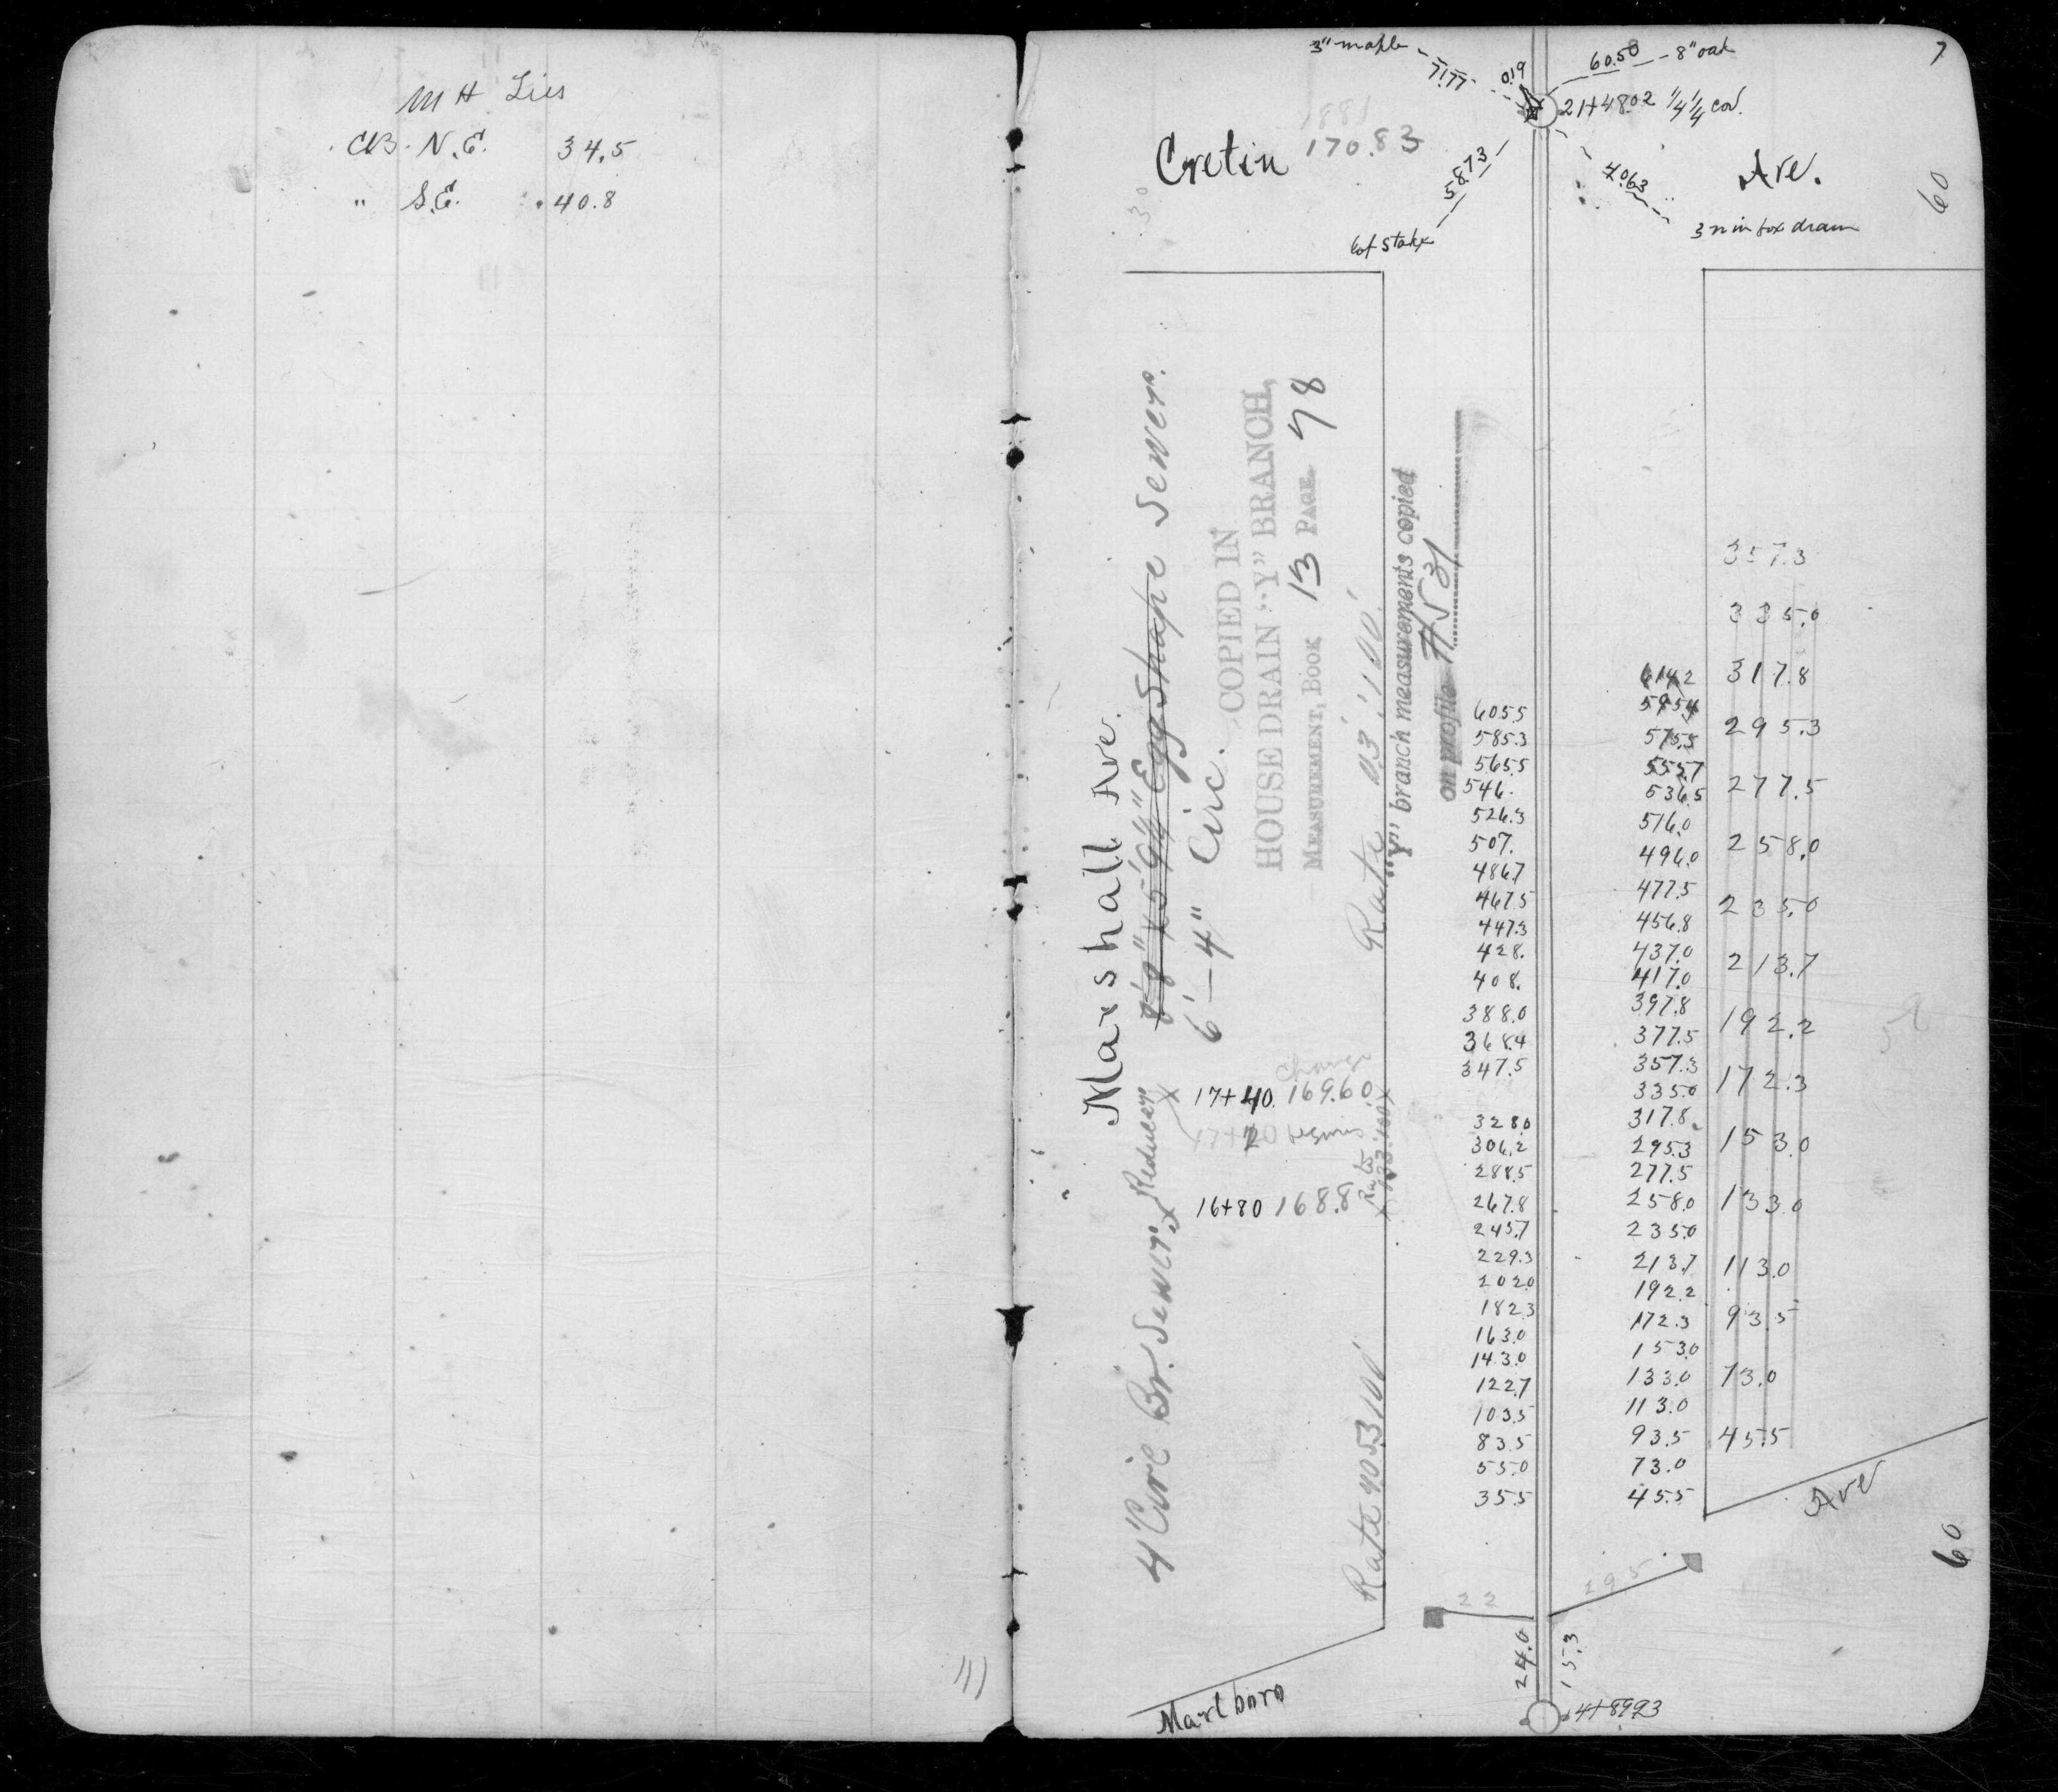 M H Lies
CB. N.E. 34.5
" S.E. 40.8
7
3" maple
71.77
0.19
60.50 - 8" oak
21+48.02 1/4 1/4 cor.
Cretin 170.83
Ave.
60
58.73
Lot Stake
40.63
3 n in box drain
Marshall Ave.
8'8" x 5'9¼" Egg Shape Sewer.
6'-4" Circ.
COPIED IN
HOUSE DRAIN "Y" BRANCH,
MEASUREMENT, BOOK 13 PAGE 78
Rate .03'/100'
"Y" branch measurements copied
on profile H531
Change
17+40. 169.60
16+80 168.8
Reducer
4' Circ Br. Sewer.
Rate 40.53/100'
605.5
585.3
565.5
546.
526.3
507.
486.7
467.5
447.3
428.
408.
388.0
368.4
347.5
328.0
306.2
288.5
267.8
245.7
229.3
202.0
182.3
163.0
143.0
122.7
103.5
83.5
55.0
35.5
614.2
595.4
575.5
555.7
536.5
516.0
496.0
477.5
456.8
437.0
417.0
397.8
377.5
357.3
335.0
317.8
295.3
277.5
258.0
235.0
213.7
192.2
172.3
153.0
133.0
113.0
93.5
73.0
45.5
357.3
335.0
317.8
295.3
277.5
258.0
235.0
213.7
192.2
172.3
153.0
133.0
113.0
93.5
73.0
45.5
Ave
60
22
29.5
24.0
15.3
Marlboro
4+89.93